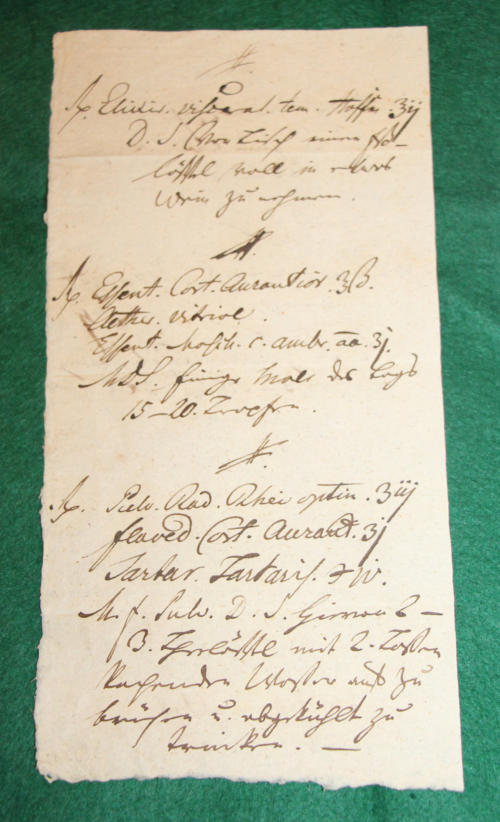 #.
Rp. Elixir. visceral. tem. Hoffm. ʒij
D. S. Vor Tisch einen Eß-
löffel voll in etwas
Wein zu nehmen.
#.
Rp. Essent. Cort. Aurantior. ʒß.
Aether. vitriol.
Essent. Mosch. c. ambr. āā. ʒj.
MDS. Einige Male des Tags
15–20. Tropfen.
#.
Rp. Pulv. Rad. Rhei optim. ʒiij
flaved. Cort. Aurant. ʒj
Tartar. Tartaris. ℥iv.
M. f. Pulv. D. S. Hiervon 2–
3. Theelöffel mit 2. Tassen
kochenden Wasser auf zu
brühen u. abgekühlt zu
trinken. —